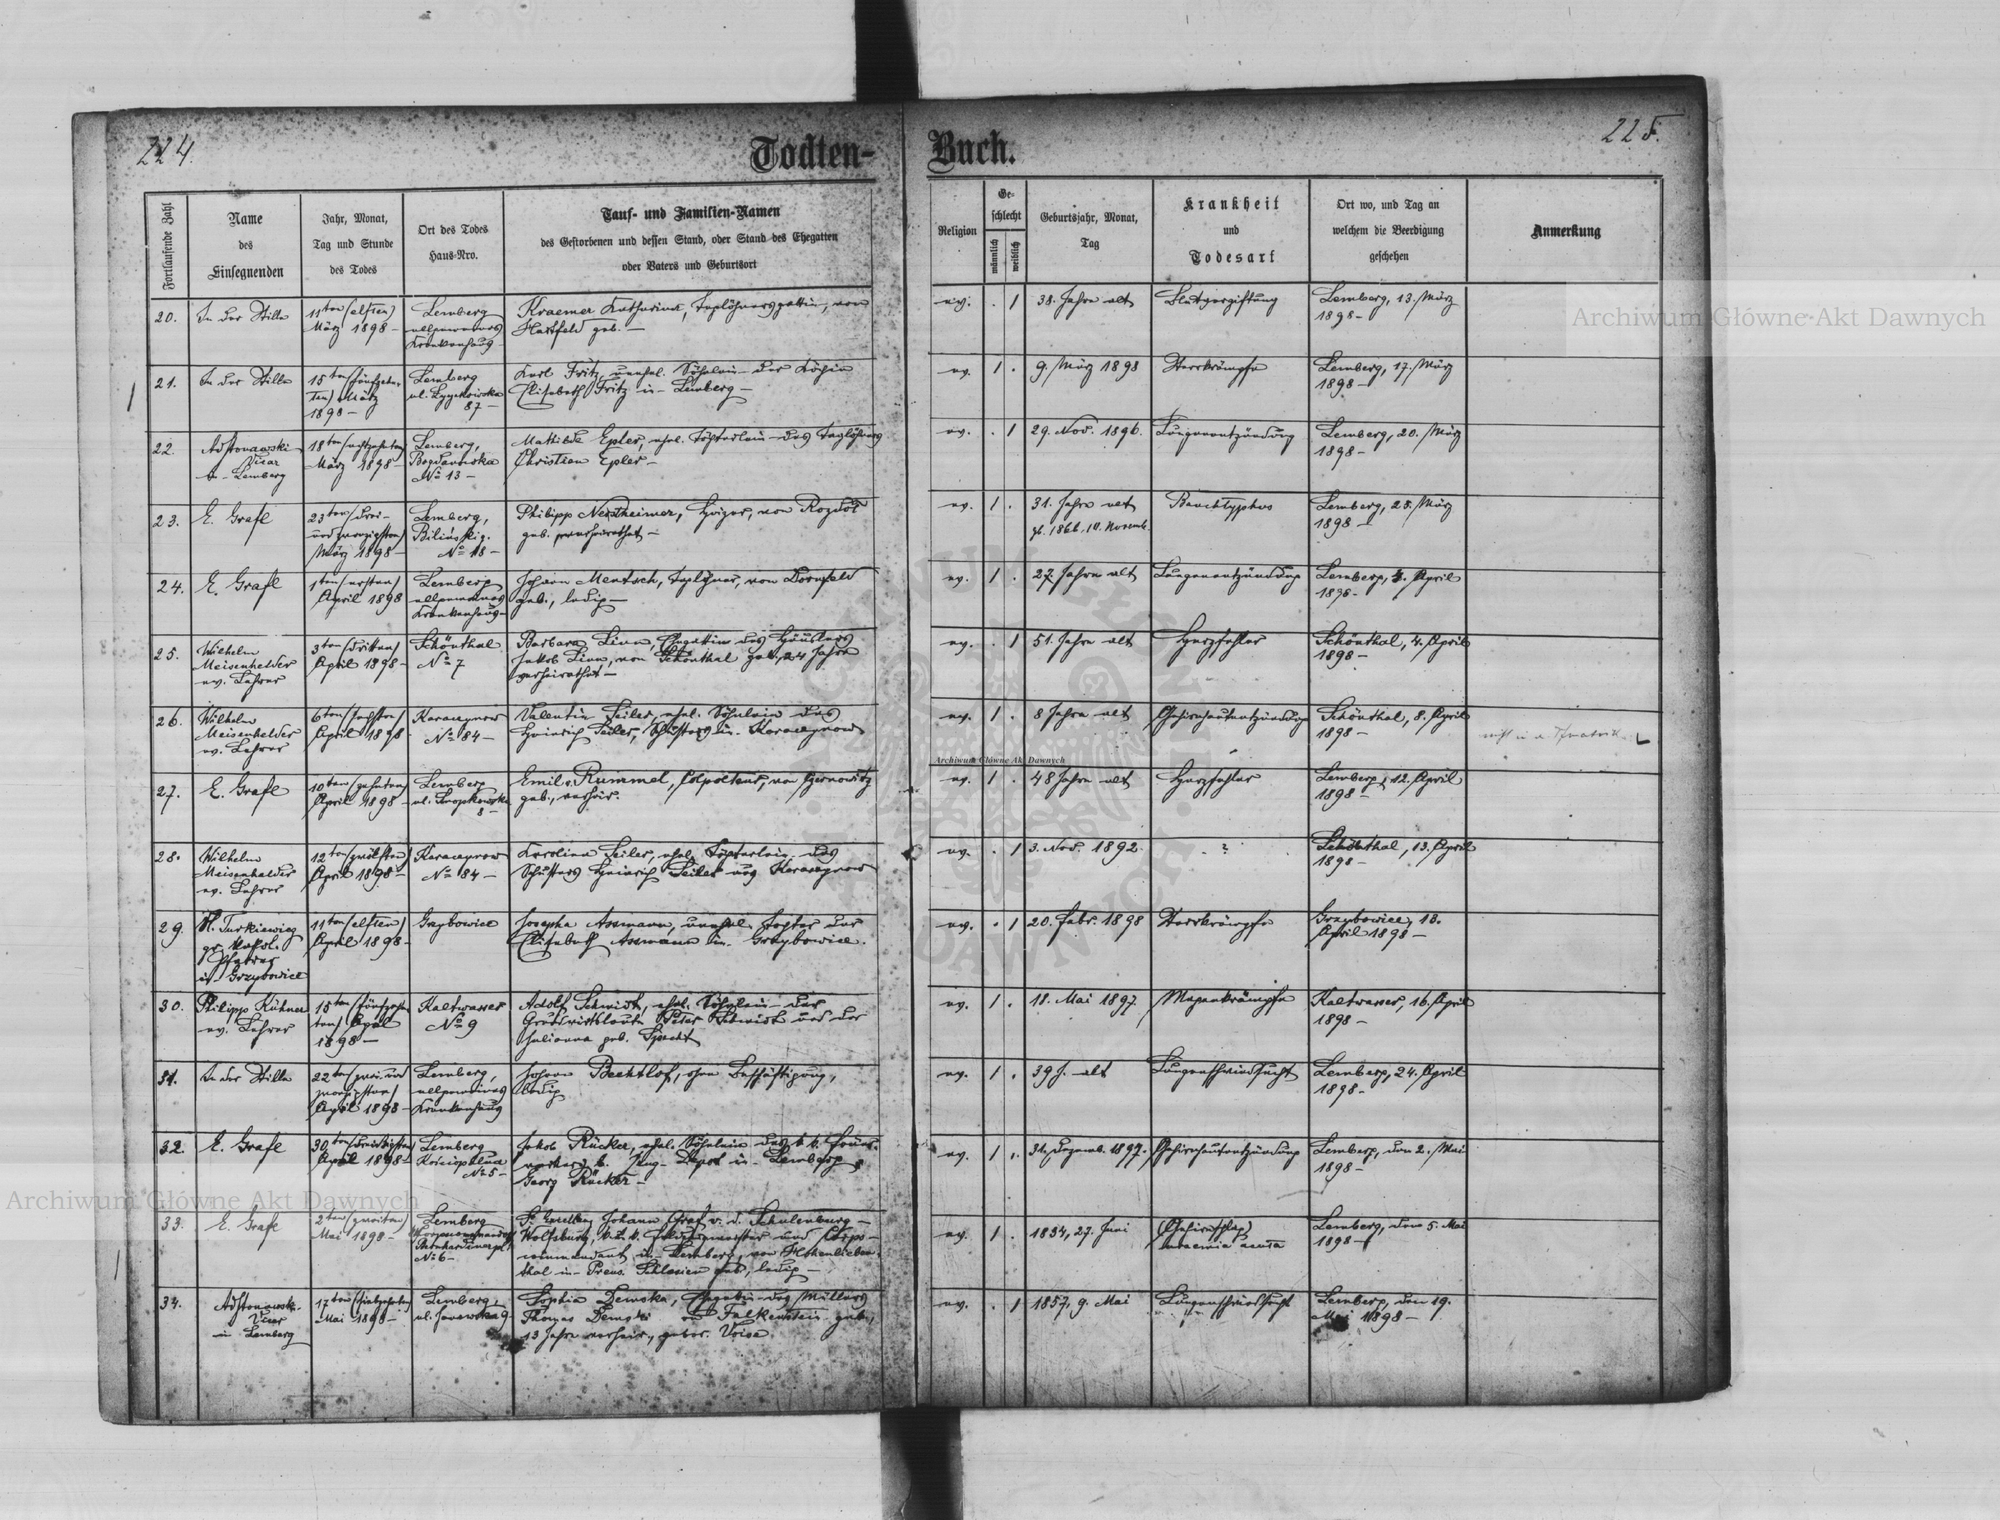 224.
Todten-
Fortlaufende Zahl
Name
des
Einsegnenden
Jahr, Monat,
Tag und Stunde
des Todes
Ort des Todes
Haus-Nro.
Tauf- und Familien-Namen
des Gestorbenen und dessen Stand, oder Stand des Ehegatten
oder Vaters und Geburtsort
20.
In der Stille
11ten (elften)
März 1898 –
Lemberg
allgemeines
Krankenhaus
Kraemer Katharina, Taglöhnersgattin, von
Hartfeld geb. –
21.
In der Stille
15ten (fünfzehn-
ten) März
1898 –
Lemberg
ul. Łyczakowska
87 –
Karl Fritz, unehel. Söhnlein der Köchin
Elisabeth Fritz in Lemberg –
22.
Vicar
in Lemberg
18ten (achtzehnten)
März 1898 –
Lemberg,
Bogdanówka
No 13 –
Mathilde Epler, ehel. Töchterlein des Taglöhners
Christian Epler –
23.
E. Grafl
23ten (drei-
undzwanzigsten)
März 1898 –
Lemberg,
No 18 –
Philipp Nertheimer, Heizer, von Rozdół
geb. verheirathet –
24.
E. Grafl
1ten (ersten)
April 1898
Lemberg
allgemeines
Krankenhaus –
Johann Mentsch, Taglöhner, von Dornfeld
geb., ledig –
25.
Wilhelm
Meisenhelder
ev. Lehrer
3ten (dritten)
April 1898 –
Schönthal
No 7
Barbara Linn, Ehegattin des Häuslers
Jakob Linn, von Schönthal geb., 24 Jahre
verheirathet –
26.
Wilhelm
Meisenhelder
ev. Lehrer
6ten (sechsten)
April 1898
Karaczynow
No 84 –
Valentin Seiler, ehel. Söhnlein des
Heinrich Seiler, Schusters in Karaczynow
27.
E. Grafl
10ten (zehnten)
April 1898
Lemberg
ul. Snopkowska
8 –
Emil v. Rummel, Colporteur, von Czernowitz
geb., verheir.
28.
Wilhelm
Meisenhelder
ev. Lehrer
12ten (zwölften)
April 1898 –
Karaczynow
No 84 –
Karolina Seiler, ehel. Töchterlein des
Schusters Heinrich Seiler aus Karaczynow
29.
Turkiewicz
gr. kathol.
Pfarrer
in Grzybowice
11ten (elften)
April 1898 –
Grzybowice
Josepha Assmann, unehel. Tochter der
Elisabeth Assmann in Grzybowice.
30.
Philipp Kühner
ev. Lehrer
15ten (fünfzehn-
ten) April
1898 –
Kaltwasser
No 9
Adolf Schwirk, ehel. Söhnlein der
Grundwirtsleute Peter Schwirk und der
Julianna geb. Specht
31.
In der Stille
22ten (zwei und
zwanzigsten)
April 1898 –
Lemberg,
allgemeines
Krankenhaus
Johann Bechtlof, ohne Beschäftigung,
ledig
32.
E. Grafl
30ten (dreissigsten)
April 1898 –
Lemberg
No 5 –
Jakob Rücker, ehel. Söhnlein des k. k.
Depot in Lemberg,
Georg Rücker –
33.
E. Grafl
2ten (zweiten)
Mai 1898 –
Lemberg
No 6 –
Sr. Excellenz Johann Graf v. d. Schulenburg –
Wolfsburg, k. u. k. Feldzeugmeister und Corps-
commandant in Lemberg, von Hohenlieben-
thal in Preus. Schlesien geb., ledig –
34.
Vicar
in Lemberg
17ten (siebzehnten)
Mai 1898 –
Lemberg,
ul. Janowska 9
Sophia Demska, Ehegattin des Müllers
Thomas Demski in Falkenstein geb.,
13 Jahre verheir., gebor. Voise
Buch.
225.
Religion
Ge-
schlecht
männlich
weiblich
Geburtsjahr, Monat,
Tag
Krankheit
und
Todesart
Ort wo, und Tag an
welchem die Beerdigung
geschehen
Anmerkung
ev. . 1 38. Jahre alt Blutvergiftung Lemberg, 13. März
1898 –
ev. 1 . 9. März 1898 Starrkrämpfe Lemberg, 17. März
1898 –
ev. . 1 29. Nov. 1896. Lungenentzündung Lemberg, 20. März
1898 –
ev. 1 . 31. Jahre alt Bauchtyphus Lemberg, 25. März
1898 –
10. Novemb.
ev. 1 . 27. Jahre alt Lungenentzündung Lemberg, 3. April
1898 –
ev. . 1 51. Jahre alt Herzfehler Schönthal, 4. April
1898 –
ev. 1 . 8 Jahre alt Gehirnhautentzündung Schönthal, 8. April
1898 –
ev. 1 . 48 Jahre alt Herzfehler Lemberg, 12. April
1898 –
ev. . 1 3. Nov. 1892 . ? Schönthal, 13. April
1898 –
ev. . 1 20. Febr. 1898 Starrkrämpfe Grzybowice, 13.
April 1898 –
ev. 1 . 18. Mai 1897 Magenkrämpfe Kaltwasser, 16. April
1898 –
ev. 1 . 39 J. alt Lungenschwindsucht Lemberg, 24. April
1898 –
ev. 1 . 31. Dezemb. 1897. Gehirnhautentzündung Lemberg, den 2. Mai
1898 –
ev. 1 . 1834, 27. Juni (Gehirnschlag) Lemberg, den 5. Mai
1898 –
ev. . 1 1857, 9. Mai Lungenschwindsucht Lemberg, den 19.
Mai 1898 –
Archiwum Główne Akt Dawnych
Archiwum Główne Akt Dawnych
Archiwum Główne Akt Dawnych